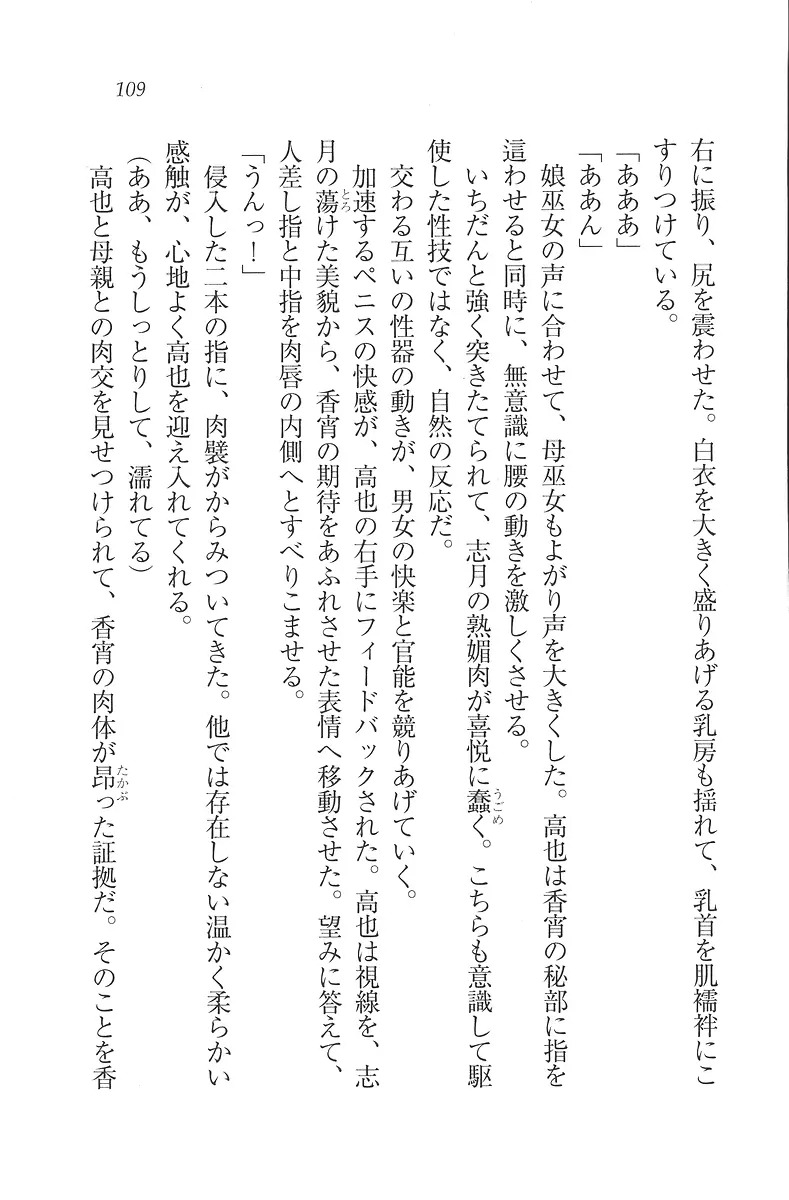 109
右に振り、尻を震わせた。白衣を大きく盛りあげる乳房も揺れて、乳首を肌襦袢にこ
すりつけている。
「あああ」
「ああん」
娘巫女の声に合わせて、母巫女もよがり声を大きくした。高也は香宵の秘部に指を
這わせると同時に、無意識に腰の動きを激しくさせる。
いちだんと強く突きたてられて、志月の熟媚肉が喜悦に蠢く。こちらも意識して駆
使した性技ではなく、自然の反応だ。
交わる互いの性器の動きが、男女の快楽と官能を競りあげていく。
加速するペニスの快感が、高也の右手にフィードバックされた。高也は視線を、志
月の蕩けた美貌から、香宵の期待をあふれさせた表情へ移動させた。望みに答えて、
人差し指と中指を肉唇の内側へとすべりこませる。
「うんっ！」
侵入した二本の指に、肉襞がからみついてきた。他では存在しない温かく柔らかい
感触が、心地よく高也を迎え入れてくれる。
（ああ、もうしっとりして、濡れてる）
高也と母親との肉交を見せつけられて、香宵の肉体が昂った証拠だ。そのことを香